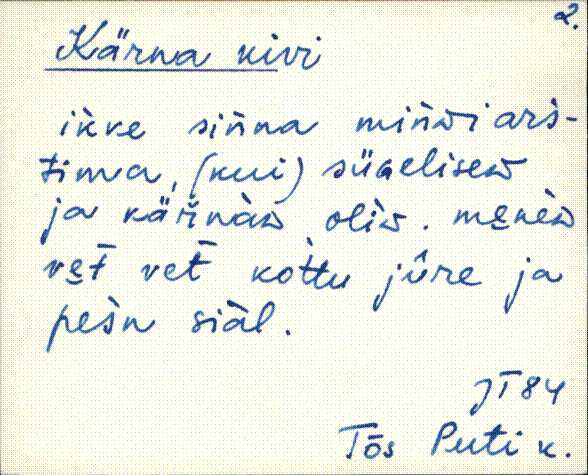 2.
Kärna kivi
ikke sinna mindi ars-
tima, (kui) sügelised
ja kärnad olid. menèd
vet vet kottu jûre ja
pesn siàl.
JT 84
Tõs Puti k.